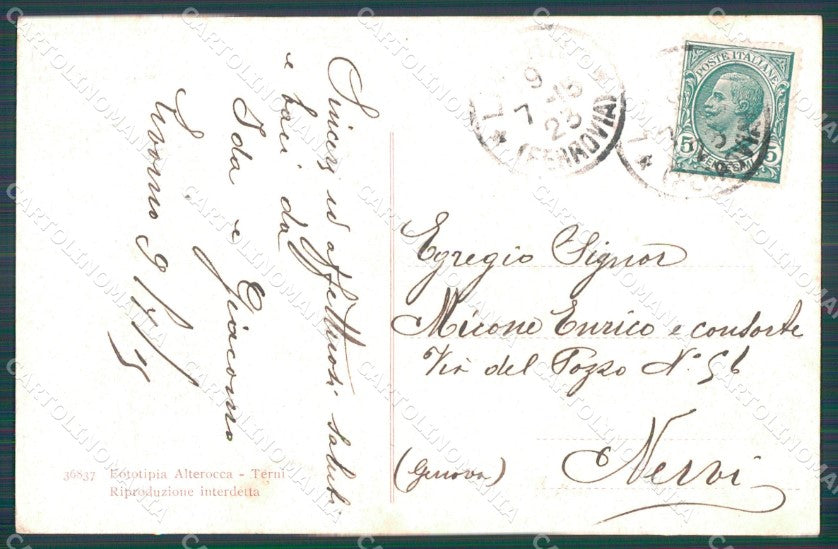 Sinceri ed affettuosi saluti
e baci da
Ida e Giacomo
Livorno 9/7/15
36837 Fototipia Alterocca - Terni
Riproduzione interdetta
9
7 23
* (FERROVIA)
POSTE ITALIANE
5 5
Egregio Signor
Micone Enrico e consorte
Via del Pozzo N° 56
Nervi
(Genova)
CARTOLINOMANIA